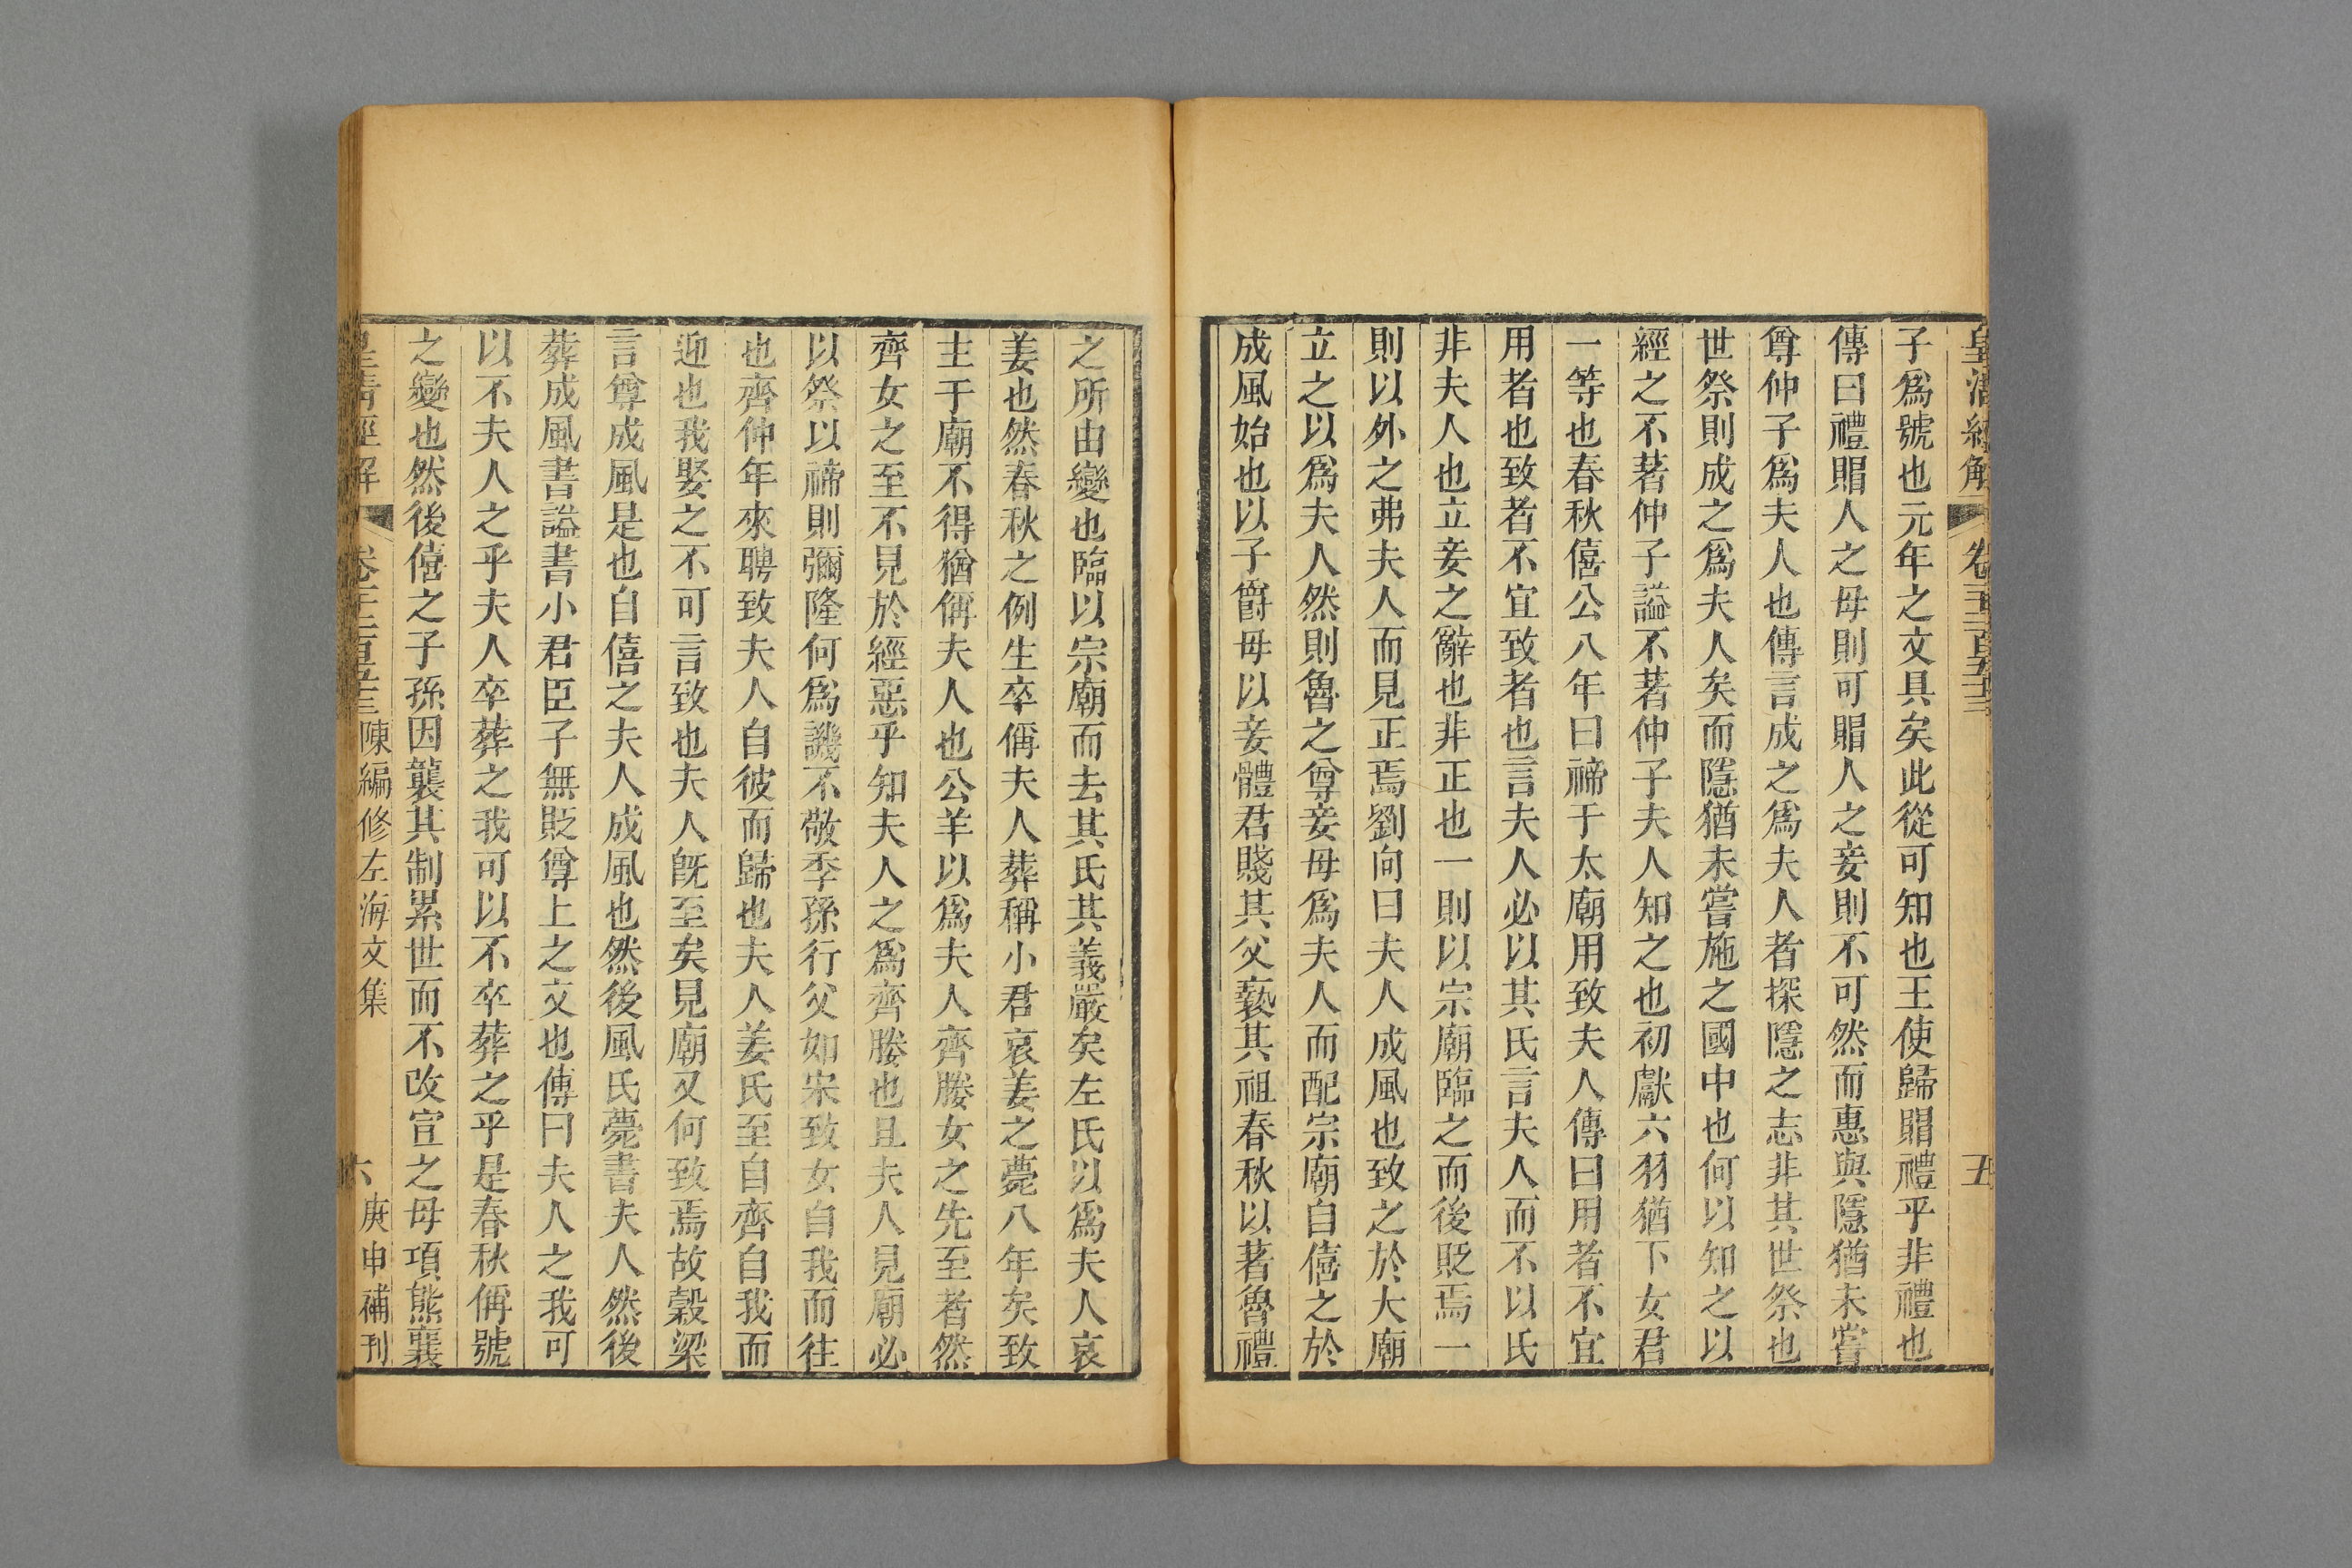 皇清經解 卷千二百五十三 五
子爲號也元年之文具矣此從可知也王使歸賵禮乎非禮也
傳曰禮賵人之母則可賵人之妾則不可然而惠與隱猶未嘗
尊仲子爲夫人也傳言成之爲夫人者探隱之志非其世祭也
世祭則成之爲夫人矣而隱猶未嘗施之國中也何以知之以
經之不著仲子謚不著仲子夫人知之也初獻六羽猶下女君
一等也春秋僖公八年曰禘于太廟用致夫人傳曰用者不宜
用者也致者不宜致者也言夫人必以其氏言夫人而不以氏
非夫人也立妾之辭也非正也一則以宗廟臨之而後貶焉一
則以外之弗夫人而見正焉劉向曰夫人成風也致之於大廟
立之以爲夫人然則魯之尊妾母爲夫人而配宗廟自僖之於
成風始也以子爵母以妾體君賤其父褻其祖春秋以著魯禮
之所由變也臨以宗廟而去其氏其義嚴矣左氏以爲夫人哀
姜也然春秋之例生卒稱夫人葬稱小君哀姜之薨八年矣致
主于廟不得猶稱夫人也公羊以爲夫人齊媵女之先至者然
齊女之至不見於經惡乎知夫人之爲齊媵也且夫人見廟必
以祭以禘則彌隆何爲譏不敬季孫行父如宋致女自我而往
也齊仲年來聘致夫人自彼而歸也夫人姜氏至自齊自我而
迎也我娶之不可言致也夫人既至矣見廟又何致焉故榖梁
言尊成風是也自僖之夫人成風也然後風氏薨書夫人然後
葬成風書謚書小君臣子無貶尊上之文也傳曰夫人之我可
以不夫人之乎夫人卒葬之我可以不卒葬之乎是春秋稱號
之變也然後僖之子孫因襲其制累世而不改宣之母項熊襄
皇清經解 卷千二百五十三 陳編修左海文集 六 庚申補刊